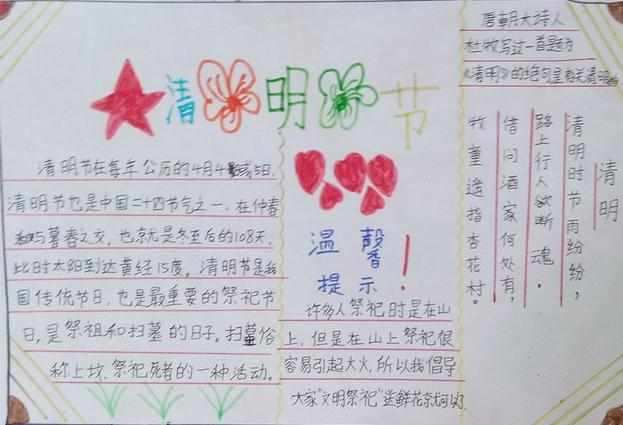 清明节
清明节在每年公历的4月4或5日.
清明节也是中国二十四节气之一.在仲春
与暮春之交,也就是冬至后的108天.
此时太阳到达黄经15度,清明节是我
国传统节日,也是最重要的祭祀节
日,是祭祖和扫墓的日子.扫墓俗
称上坟,祭祀死者的一种活动.
温馨
提示!
许多人祭祀时是在山
上.但是在山上祭祀很
容易引起大火,所以我倡导
大家"文明祭祀"送鲜花就可以了.
唐朝大诗人
杜牧写过一首题为
《清明》的绝句是有关清明的
清明
清明时节雨纷纷,
路上行人欲断魂。
借问酒家何处有,
牧童遥指杏花村。